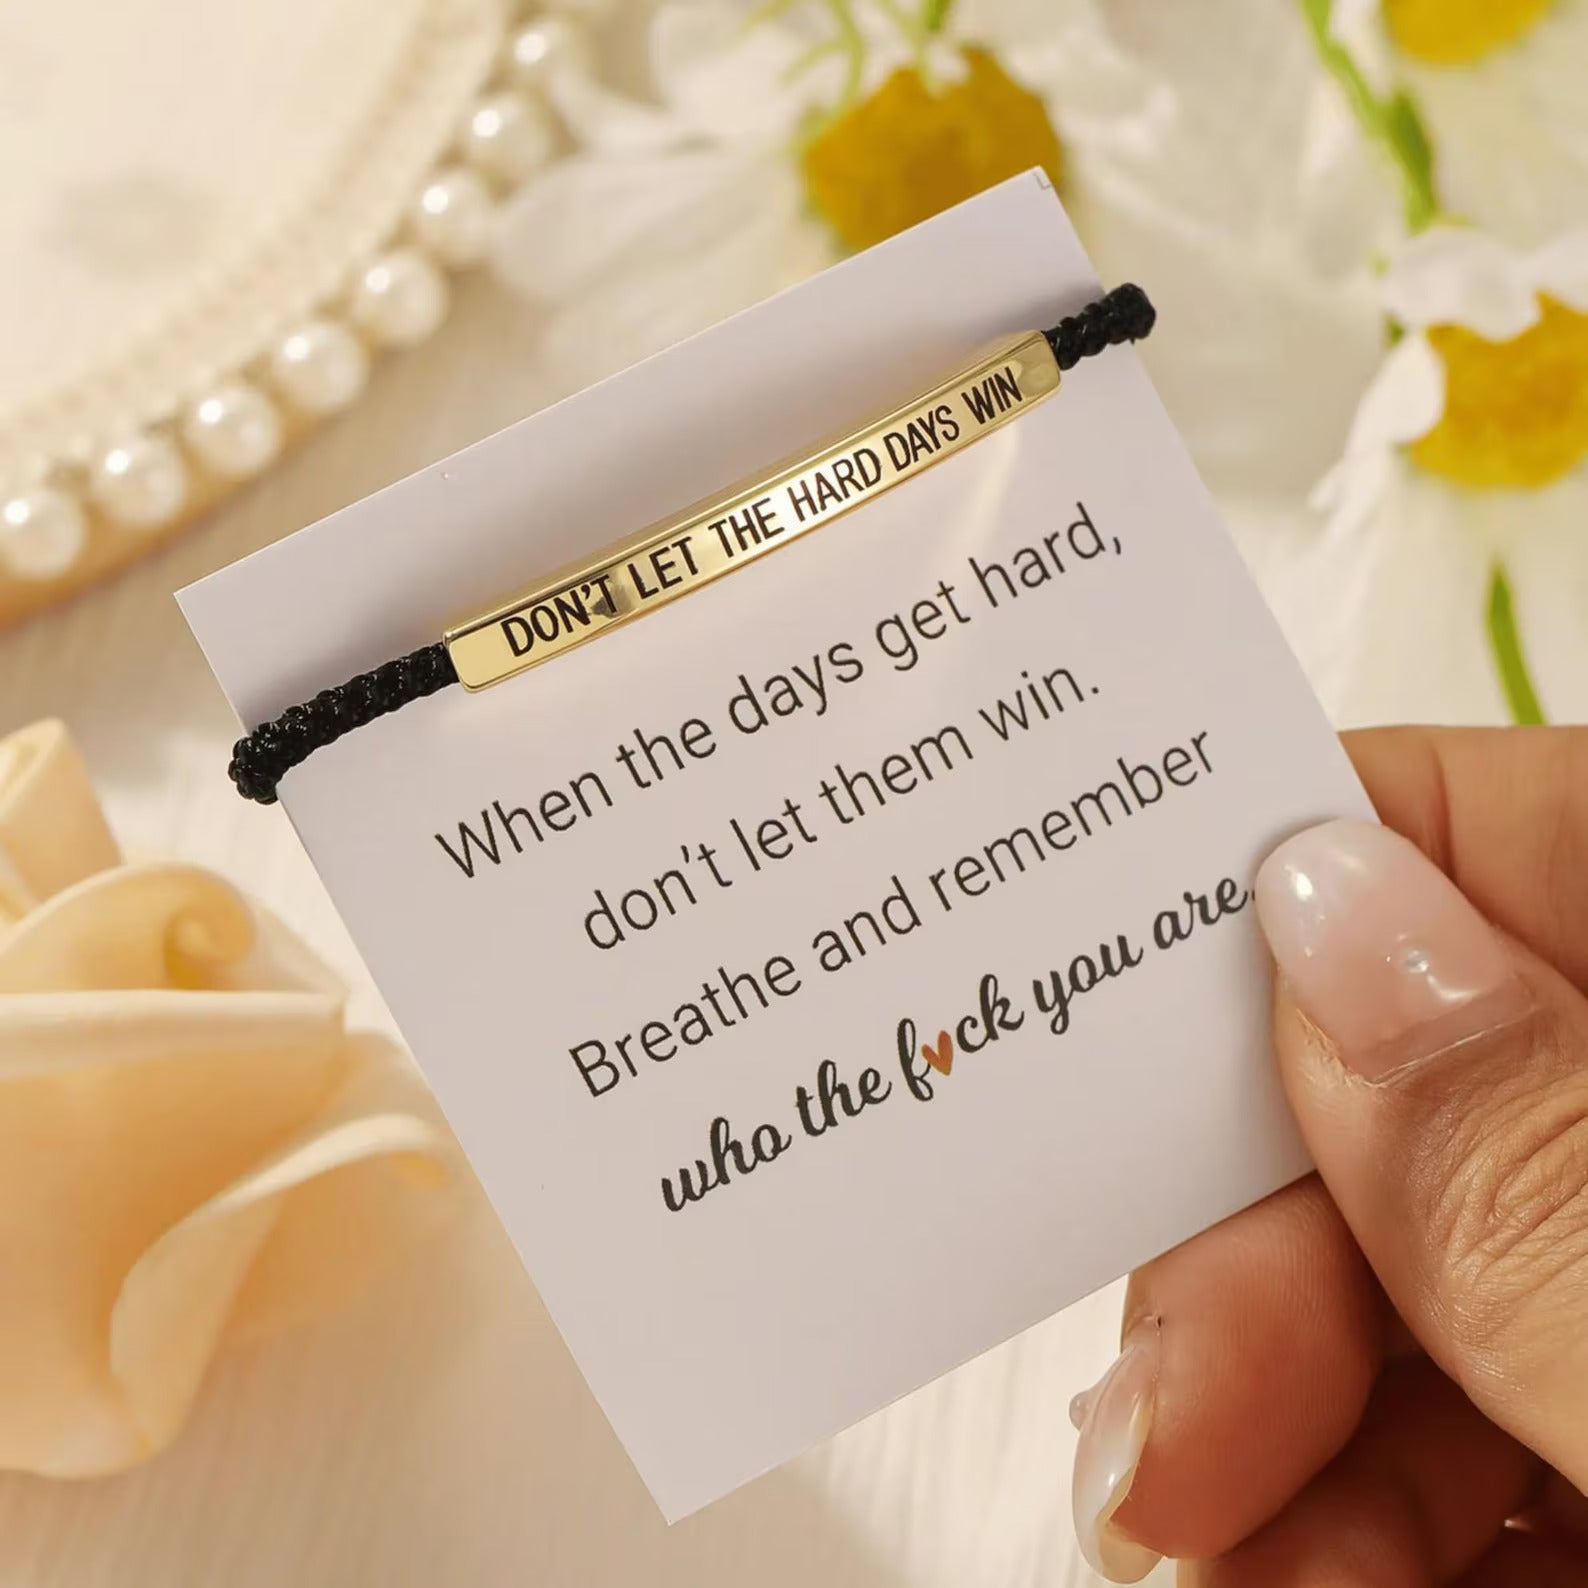 DON'T LET THE HARD DAYS WIN
When the days get hard,
don't let them win.
Breathe and remember
who the f♥ck you are.